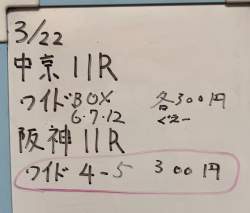 3/22
中京 11R
ワイドBOX 各300円
6.7.12 ぐえー
阪神 11R
ワイド 4-5 300円